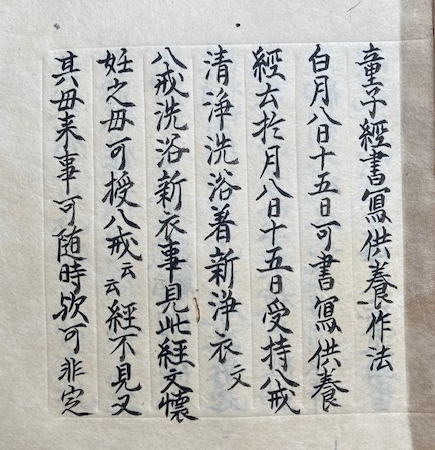 童子經書寫供養作法
白月八日十五日可書寫供養
經云於月八日十五日受持八戒
清浄洗浴着新浄衣文
八戒洗浴新衣事見此經文懐
妊之母可授八戒云云經不見又
其母来事可随時欤可非定